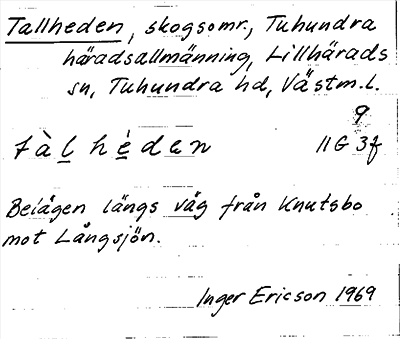 Tallheden, skogsomr., Tuhundra
häradsallmänning, Lillhärads
sn, Tuhundra hd, Västm.l.
9
tàl hèden 11G 3f
Belägen längs väg från Knutsbo
mot Långsjön.
Inger Ericson 1969